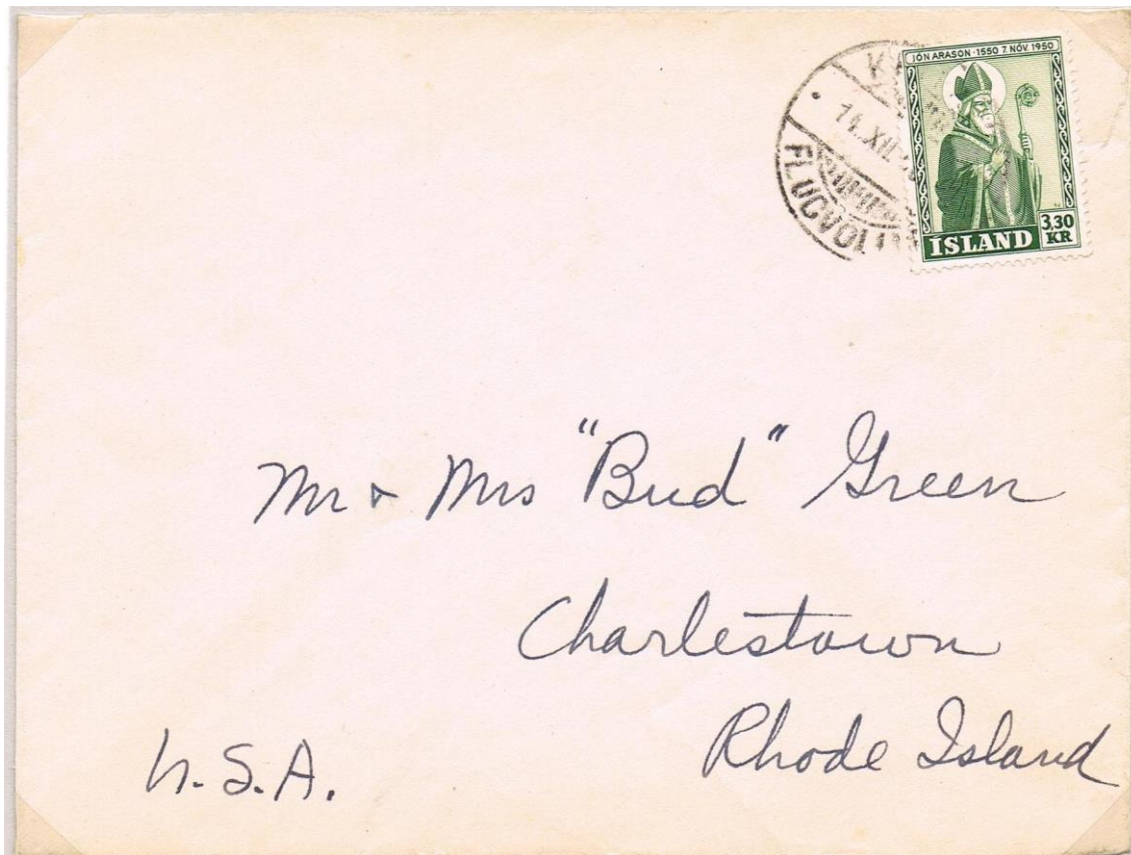 JÓN ARASON · 1550 7. NÓV. 1950
ÍSLAND
3,30
KR
14.XII
Mr & Mrs "Bud" Green
Charlestown
Rhode Island
U.S.A.